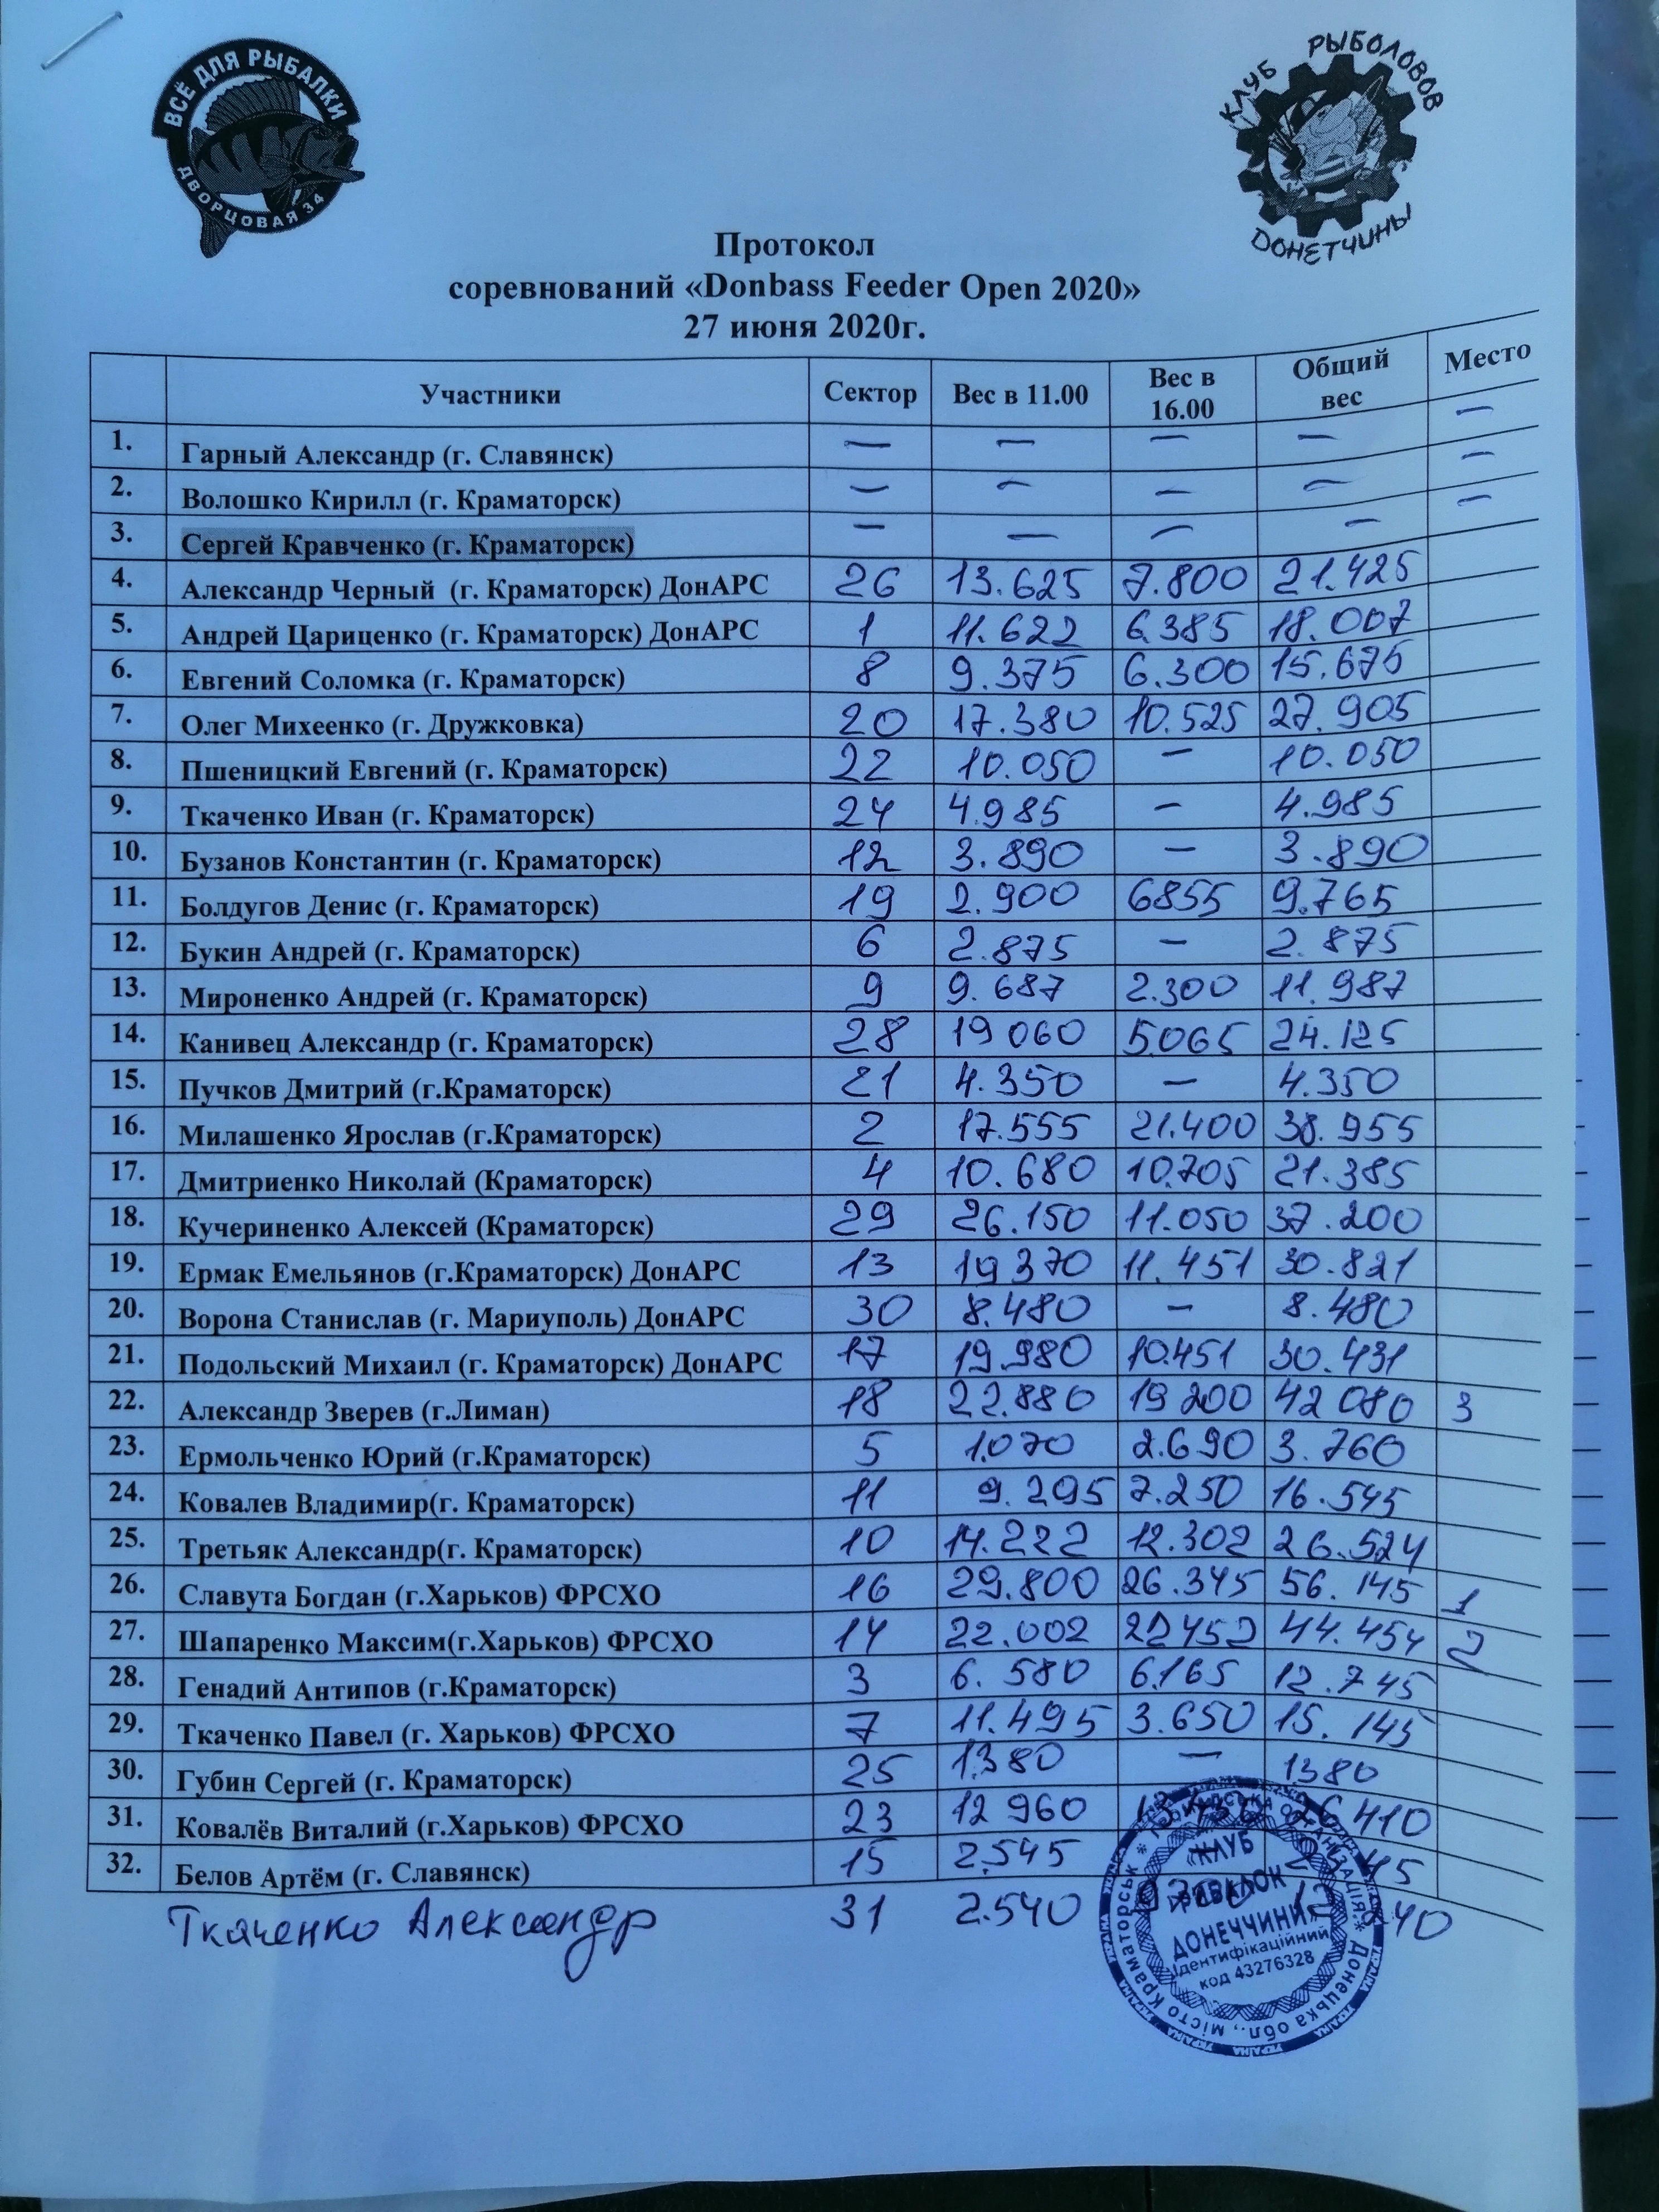 ВСЁ ДЛЯ РЫБАЛКИ
ДВОРЦОВАЯ 34
КЛУБ РЫБОЛОВОВ
ДОНЕТЧИНЫ
Протокол
соревнований «Donbass Feeder Open 2020»
27 июня 2020г.
Участники Сектор Вес в 11.00 Вес в 16.00 Общий вес Место
1. Гарный Александр (г. Славянск) — — — — —
2. Волошко Кирилл (г. Краматорск) — — — — —
3. Сергей Кравченко (г. Краматорск) — — — — —
4. Александр Черный (г. Краматорск) ДонАРС 26 13.625 7.800 21.425
5. Андрей Цариценко (г. Краматорск) ДонАРС 1 11.622 6.385 18.007
6. Евгений Соломка (г. Краматорск) 8 9.375 6.300 15.675
7. Олег Михеенко (г. Дружковка) 20 17.380 10.525 27.905
8. Пшеницкий Евгений (г. Краматорск) 22 10.050 — 10.050
9. Ткаченко Иван (г. Краматорск) 24 4.985 — 4.985
10. Бузанов Константин (г. Краматорск) 12 3.890 — 3.890
11. Болдугов Денис (г. Краматорск) 19 2.900 6855 9.765
12. Букин Андрей (г. Краматорск) 6 2.875 — 2.875
13. Мироненко Андрей (г. Краматорск) 9 9.687 2.300 11.987
14. Канивец Александр (г. Краматорск) 28 19 060 5.065 24.125
15. Пучков Дмитрий (г.Краматорск) 21 4.350 — 4.350
16. Милашенко Ярослав (г.Краматорск) 2 17.555 21.400 38.955
17. Дмитриенко Николай (Краматорск) 4 10.680 10.705 21.385
18. Кучериненко Алексей (Краматорск) 29 26.150 11.050 37.200
19. Ермак Емельянов (г.Краматорск) ДонАРС 13 19 370 11.451 30.821
20. Ворона Станислав (г. Мариуполь) ДонАРС 30 8.480 — 8.480
21. Подольский Михаил (г. Краматорск) ДонАРС 17 19.980 10.451 30.431
22. Александр Зверев (г.Лиман) 18 22.880 19 200 42 080 3
23. Ермольченко Юрий (г.Краматорск) 5 1.070 2.690 3.760
24. Ковалев Владимир(г. Краматорск) 11 9.295 7.250 16.545
25. Третьяк Александр(г. Краматорск) 10 14.222 12.302 26.524
26. Славута Богдан (г.Харьков) ФРСХО 16 29.800 26.345 56.145 1
27. Шапаренко Максим(г.Харьков) ФРСХО 14 22.002 22452 44.454 2
28. Генадий Антипов (г.Краматорск) 3 6.580 6.165 12.745
29. Ткаченко Павел (г. Харьков) ФРСХО 7 11.495 3.650 15.145
30. Губин Сергей (г. Краматорск) 25 1.380 — 1380
31. Ковалёв Виталий (г.Харьков) ФРСХО 23 12 960
32. Белов Артём (г. Славянск) 15 2.545
Ткаченко Александр 31 2.540
«КЛУБ
РИБАЛОК
ДОНЕЧЧИНИ»
Ідентифікаційний
код 43276328
місто Краматорськ
Донецька обл.,